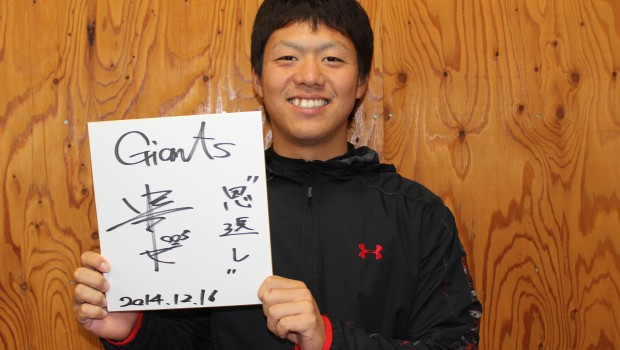 Giants
005
"恩返し"
2014.12.16